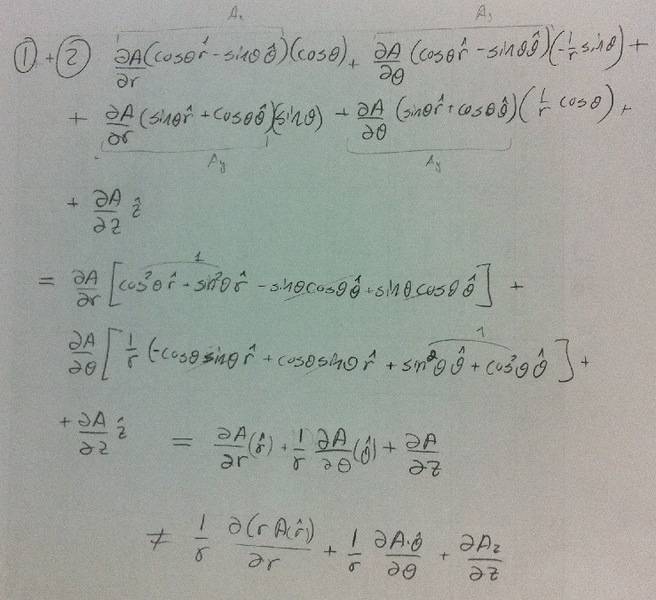 Aₓ Aₓ
① + ② ∂A/∂r (cosθ r̂ - sinθ θ̂)(cosθ) + ∂A/∂θ (cosθ r̂ - sinθ θ̂)(-1/r sinθ) +
+ ∂A/∂r (sinθ r̂ + cosθ θ̂)(sinθ) + ∂A/∂θ (sinθ r̂ + cosθ θ̂)(1/r cosθ) +
A_y A_y
+ ∂A/∂z ẑ
1
= ∂A/∂r [cos²θ r̂ + sin²θ r̂ - sinθcosθ θ̂ + sinθcosθ θ̂] +
1
∂A/∂θ [1/r (-cosθsinθ r̂ + cosθsinθ r̂ + sin²θ θ̂ + cos²θ θ̂] +
+ ∂A/∂z ẑ = ∂A/∂r (r̂) + 1/r ∂A/∂θ (θ̂) + ∂A/∂z
≠ 1/r ∂(rA(r̂))/∂r + 1/r ∂A·θ̂/∂θ + ∂A_z/∂z